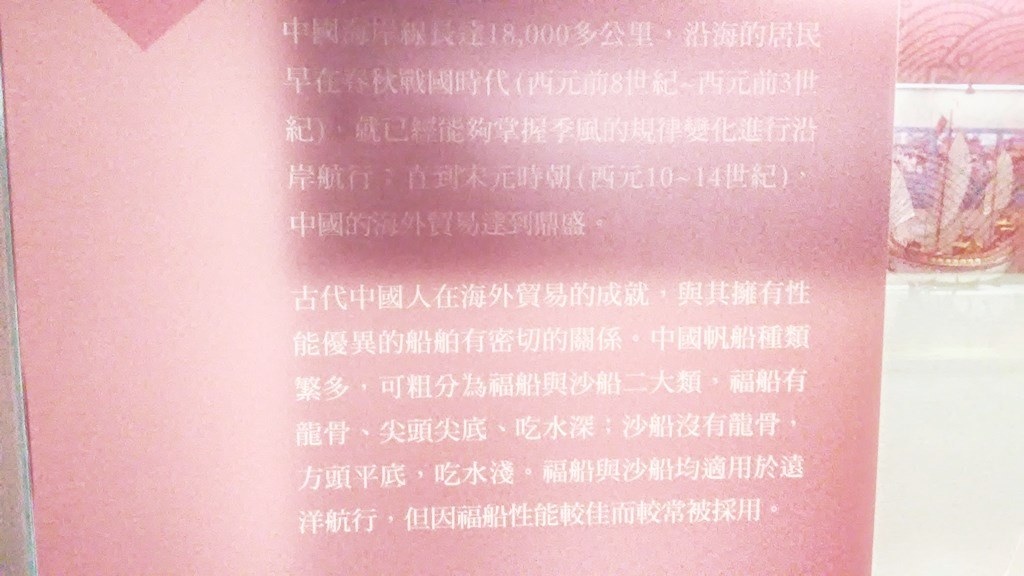 中國海岸線長達18,000多公里，沿海的居民
早在春秋戰國時代(西元前8世紀~西元前3世
紀)，就已經能夠掌握季風的規律變化進行沿
岸航行；直到宋元時期(西元10~14世紀)，
中國的海外貿易達到鼎盛。
古代中國人在海外貿易的成就，與其擁有性
能優異的船舶有密切的關係。中國帆船種類
繁多，可粗分為福船與沙船二大類。福船有
龍骨、尖頭尖底、吃水深；沙船沒有龍骨，
方頭平底，吃水淺。福船與沙船均適用於遠
洋航行，但因福船性能較佳而較常被採用。